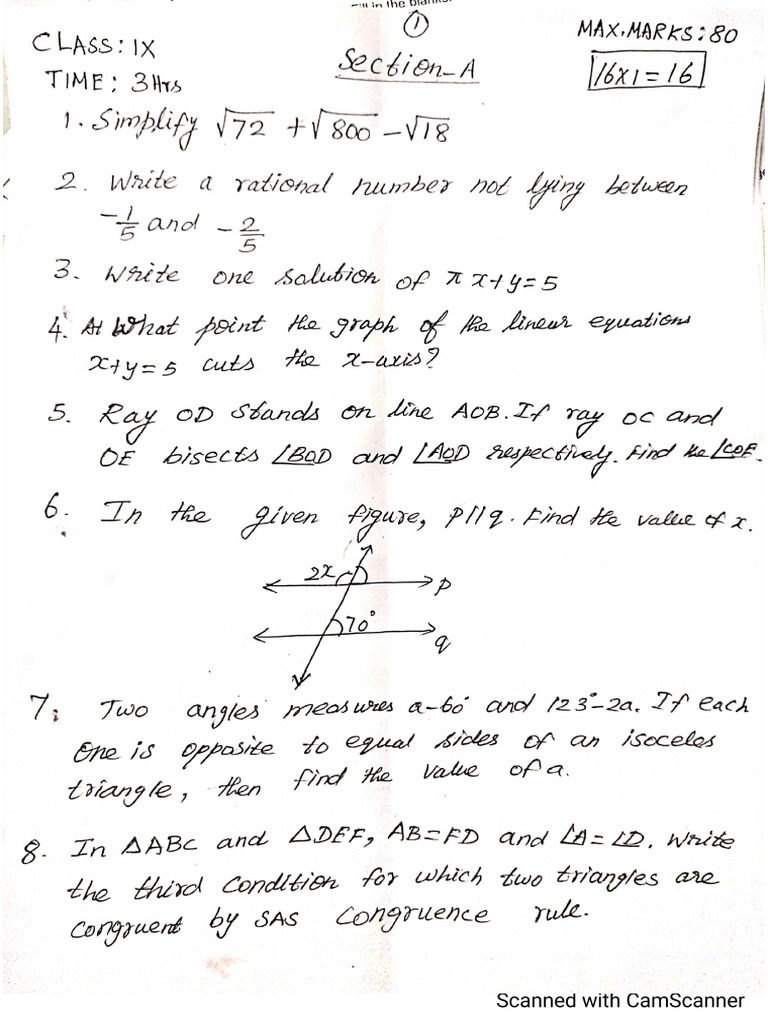 ①
CLASS: IX
MAX.MARKS: 80
Section-A
TIME: 3Hrs
16x1=16
1. Simplify √72 + √800 - √18
2. Write a rational number not lying between
-1/5 and -2/5
3. Write one solution of πx+y=5
4. At What point the graph of the linear equations
x+y=5 cuts the x-axis?
5. Ray OD stands on line AOB. If ray OC and
OE bisects ∠BOD and ∠AOD respectively. Find the ∠COE.
6. In the given figure, p||q. Find the value of x.
2x
p
70°
q
7. Two angles measures a-60° and 123°-2a. If each
one is opposite to equal sides of an isoceles
triangle, then find the value of a.
8. In △ABC and △DEF, AB=FD and ∠A=∠D. Write
the third condition for which two triangles are
congruent by SAS congruence rule.
Scanned with CamScanner